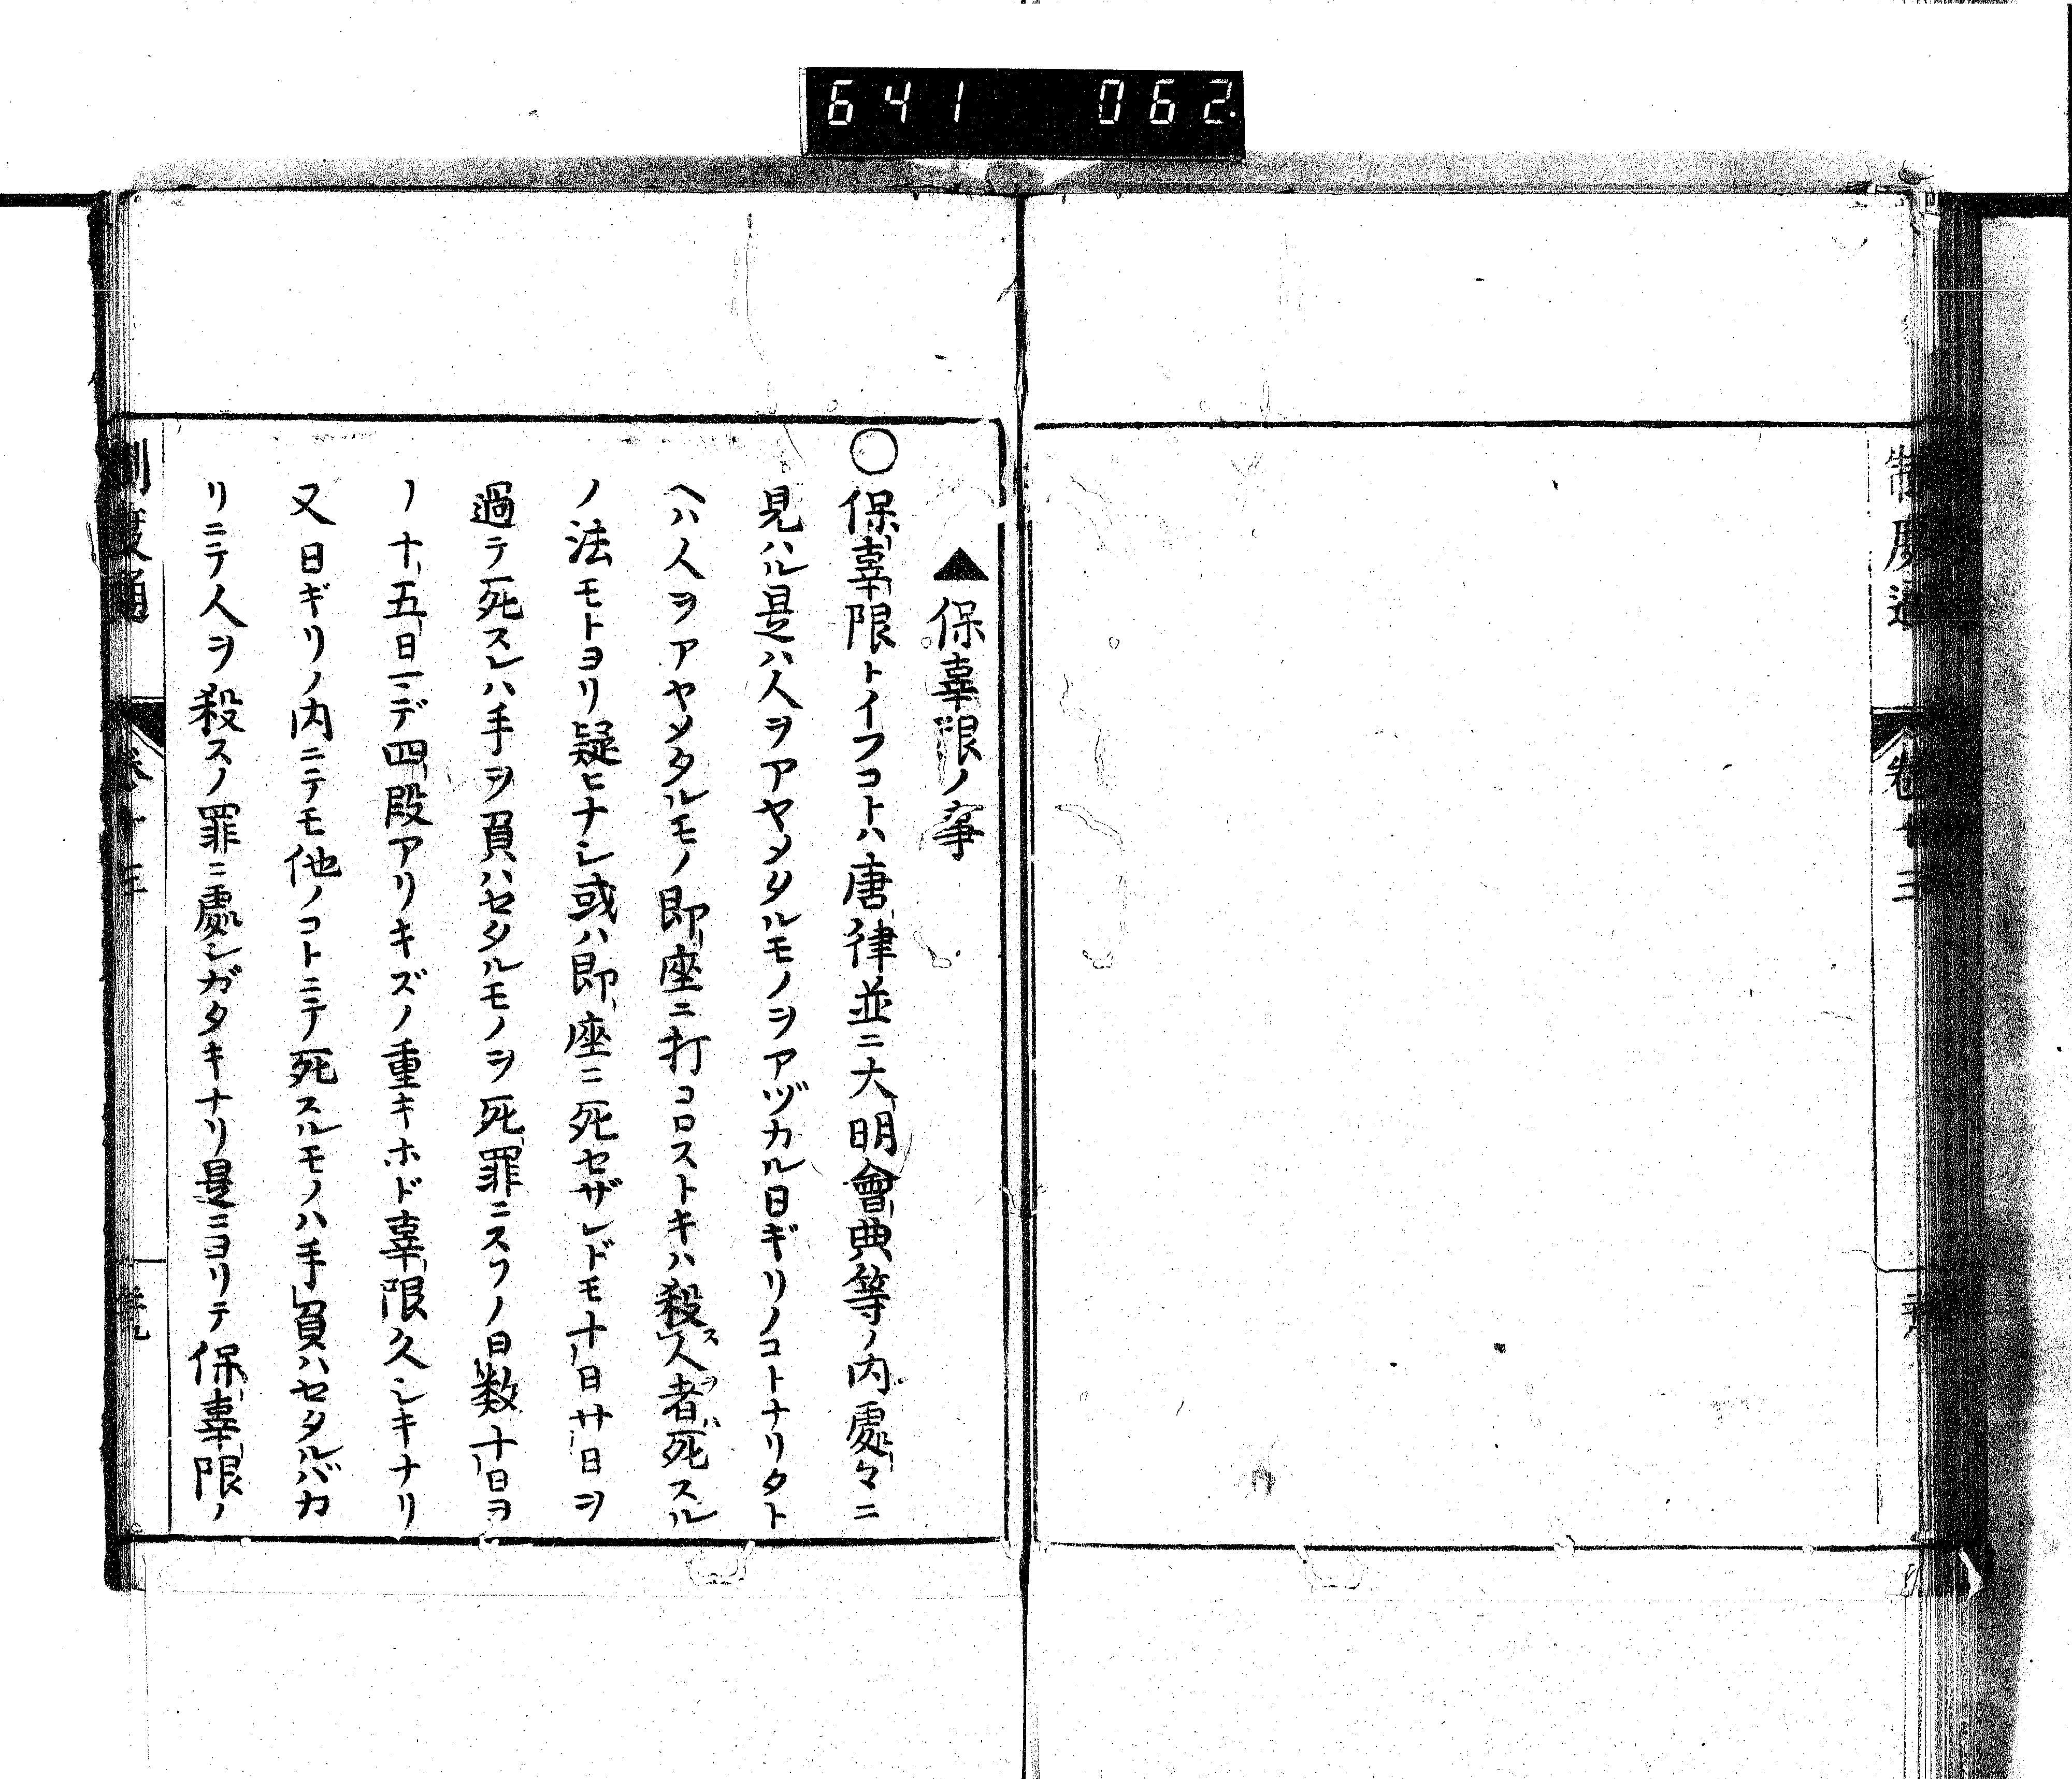 641 062
制度通
卷十三
▲保辜限ノ事
○保辜限トイフコトハ唐律並ニ大明會典等ノ内處々ニ
見ハル是ハ人ヲアヤメタルモノヲアヅカル日ギリノコトナリタト
ヘハ人ヲアヤメタルモノ即座ニ打コロストキハ殺人者死スル
ノ法モトヨリ疑ヒナシ或ハ即座ニ死セザレドモ十日廿日ヲ
過テ死スレハ手ヲ負ハセタルモノヲ死罪ニスソノ日数十日ヨ
ノ十五日マデ四段アリキズノ重キホド辜限久シキナリ
又日ギリノ内ニテモ他ノコトニテ死スルモノハ手負ハセタルバカ
リニテ人ヲ殺スノ罪ニ處シガタキナリ是ニヨリテ保辜限ノ
制度通
卷十三